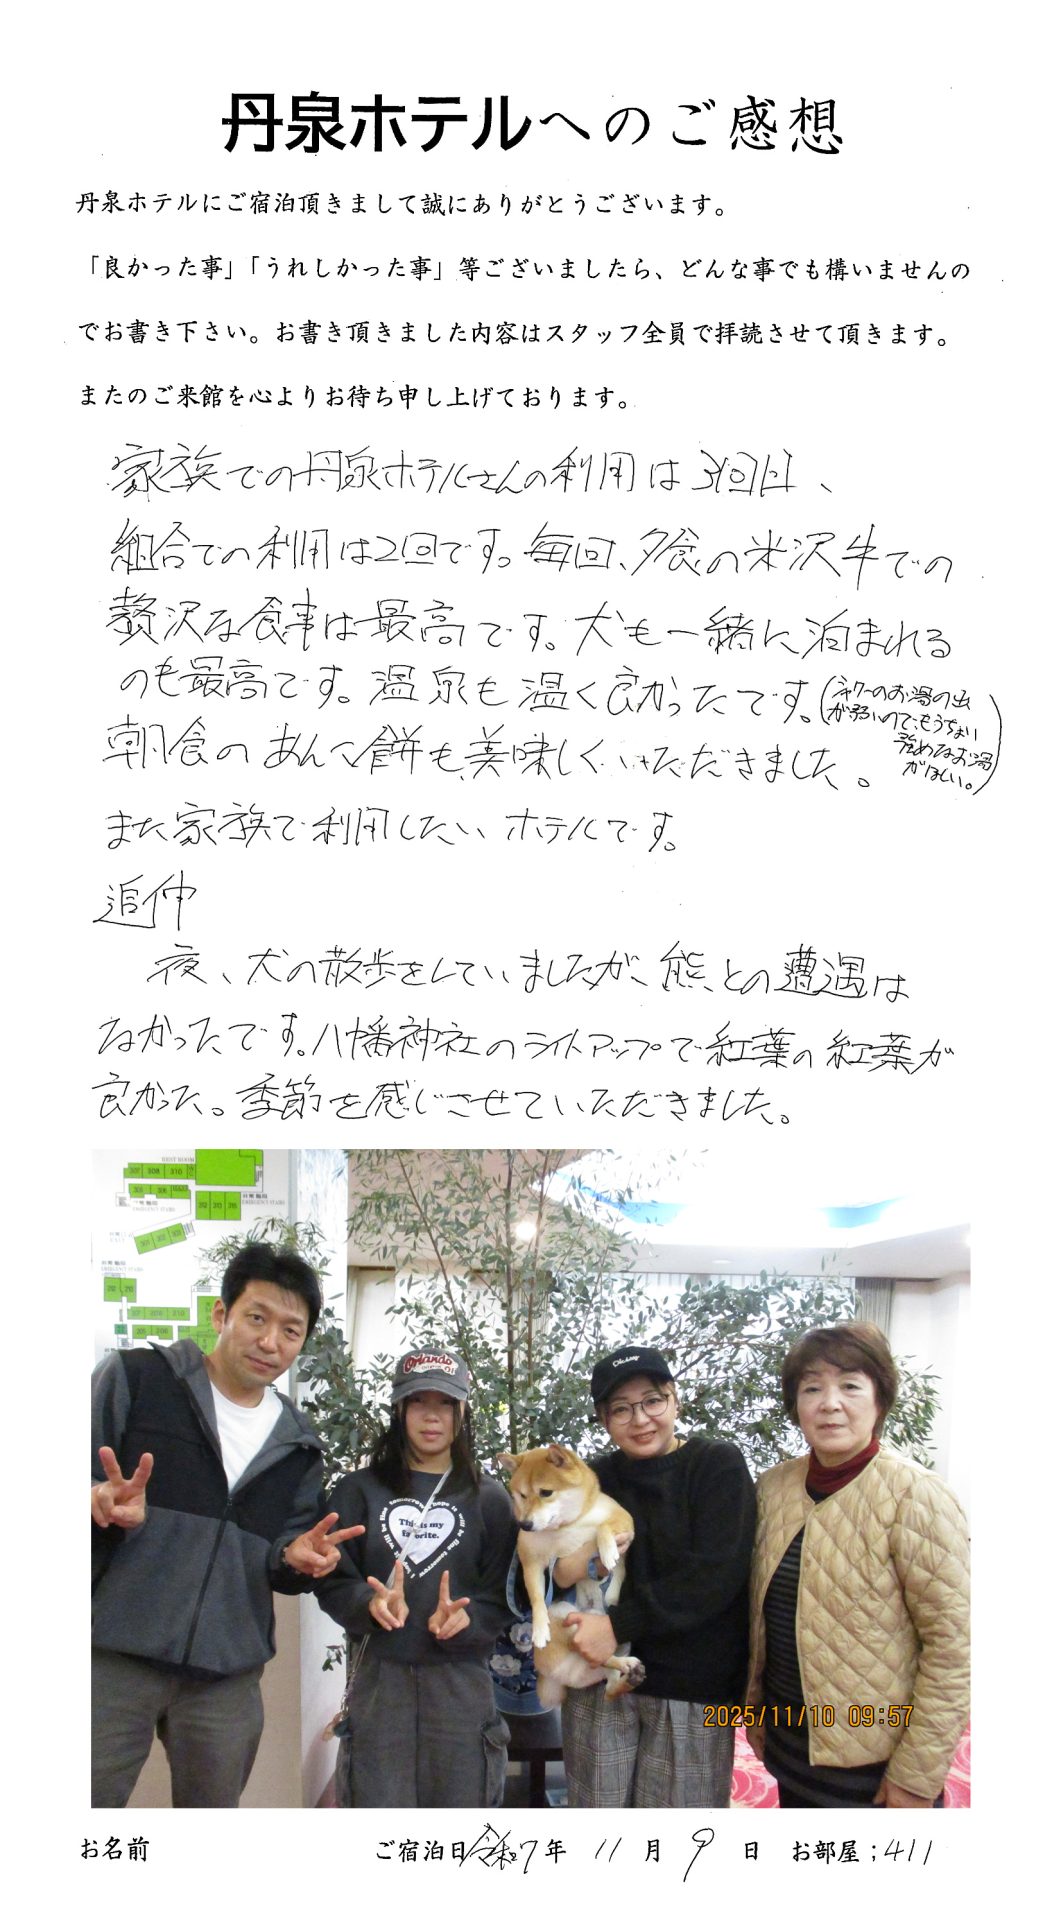 丹泉ホテルへのご感想
丹泉ホテルにご宿泊頂きまして誠にありがとうございます。
「良かった事」「うれしかった事」等ございましたら、どんな事でも構いませんの
でお書き下さい。お書き頂きました内容はスタッフ全員で拝読させて頂きます。
またのご来館を心よりお待ち申し上げております。
家族での丹泉ホテルさんの利用は3回目、
組合での利用は2回です。毎回、夕食の米沢牛での
贅沢な食事は最高です。犬も一緒に泊まれる
のも最高です。温泉も温く良かったです。
(シャワーのお湯の出
が弱いので、もうちょい
強めなお湯
がほしい。)
朝食のあんこ餅も美味しくいただきました。
また家族で利用したいホテルです。
追伸
夜、犬の散歩をしていましたが、熊との遭遇は
なかったです。八幡神社のライトアップで紅葉の紅葉が
良かった。季節を感じさせていただきました。
REST ROOM
307 308 310
305 306
312 313 315
EMERGENCY STAIRS
301 302 303
EMERGENCY STAIRS
212 210
207 208 210
205 206
Orlando
This is my
favorite.
I hope it will be fine tomorrow
2025/11/10 09:57
お名前
ご宿泊日 令和7年 11月 9日 お部屋;411